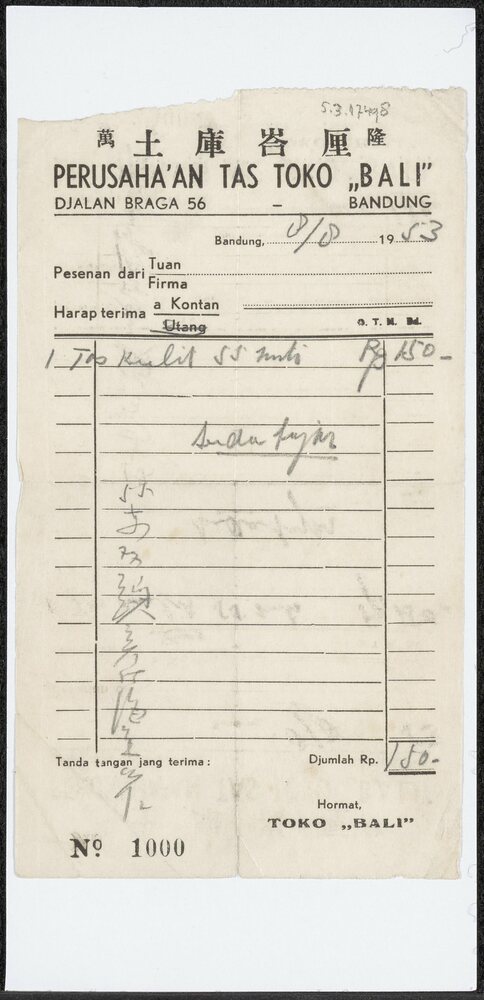 5.3.17498
萬 土庫峇厘 隆
PERUSAHA'AN TAS TOKO „BALI”
DJALAN BRAGA 56 – BANDUNG
Bandung, 8/8 1953
Pesenan dari Tuan
Firma
Harap terima a Kontan
Utang
O. T. M. Bd.
1 Tas kulit 55 Rp 150-
Tanda tangan jang terima :
Djumlah Rp. 150-
Hormat,
TOKO „BALI”
Nº 1000